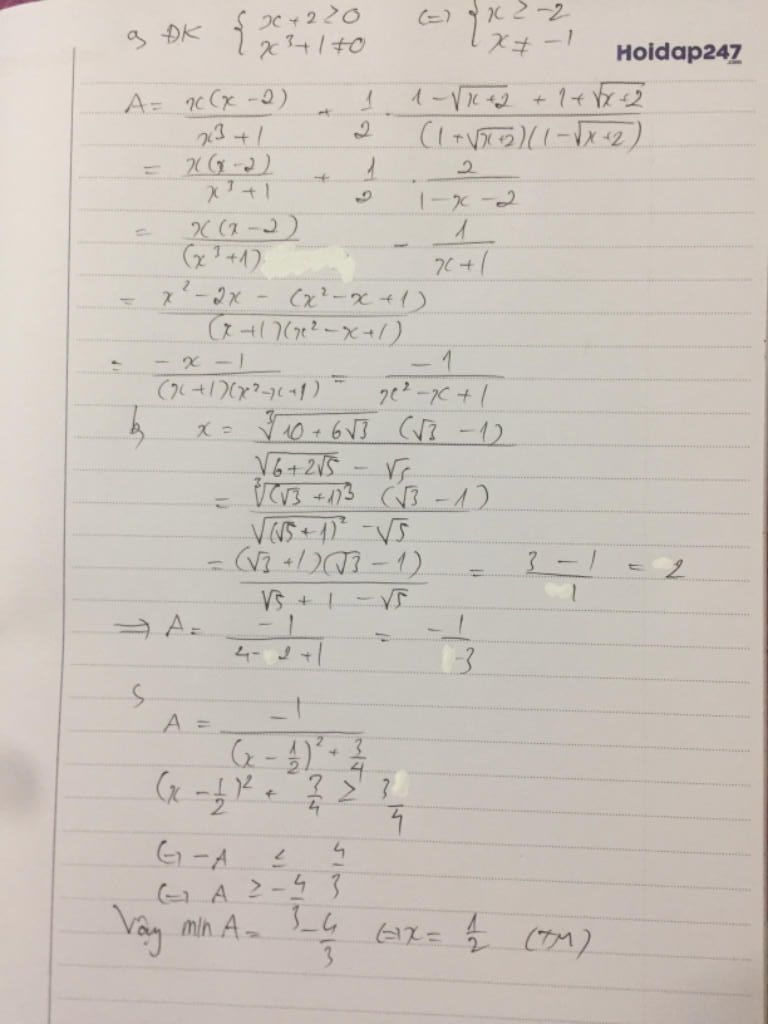 a, ĐK { x + 2 ≥ 0 (=) { x ≥ -2
x³ + 1 ≠ 0 x ≠ -1
Hoidap247
.com
A = x(x - 2) / (x³ + 1) + 1/2 . (1 - √(x+2) + 1 + √(x+2)) / ((1 + √(x+2))(1 - √(x+2)))
= x(x - 2) / (x³ + 1) + 1/2 . 2 / (1 - x - 2)
= x(x - 2) / (x³ + 1) - 1 / (x + 1)
= (x² - 2x - (x² - x + 1)) / ((x + 1)(x² - x + 1))
= (-x - 1) / ((x + 1)(x² - x + 1)) = -1 / (x² - x + 1)
b, x = ∛(10 + 6√3) (√3 - 1) / (√(6 + 2√5) - √5)
= ∛((√3 + 1)³) (√3 - 1) / (√((√5 + 1)²) - √5)
= (√3 + 1)(√3 - 1) / (√5 + 1 - √5) = (3 - 1) / 1 = 2
=> A = -1 / (4 - 2 + 1) = -1 / 3
c,
A = -1 / ((x - 1/2)² + 3/4)
(x - 1/2)² + 3/4 ≥ 3/4
(=) -A ≤ 4/3
(=) A ≥ -4/3
Vậy min A = -4/3 (=) x = 1/2 (TM)